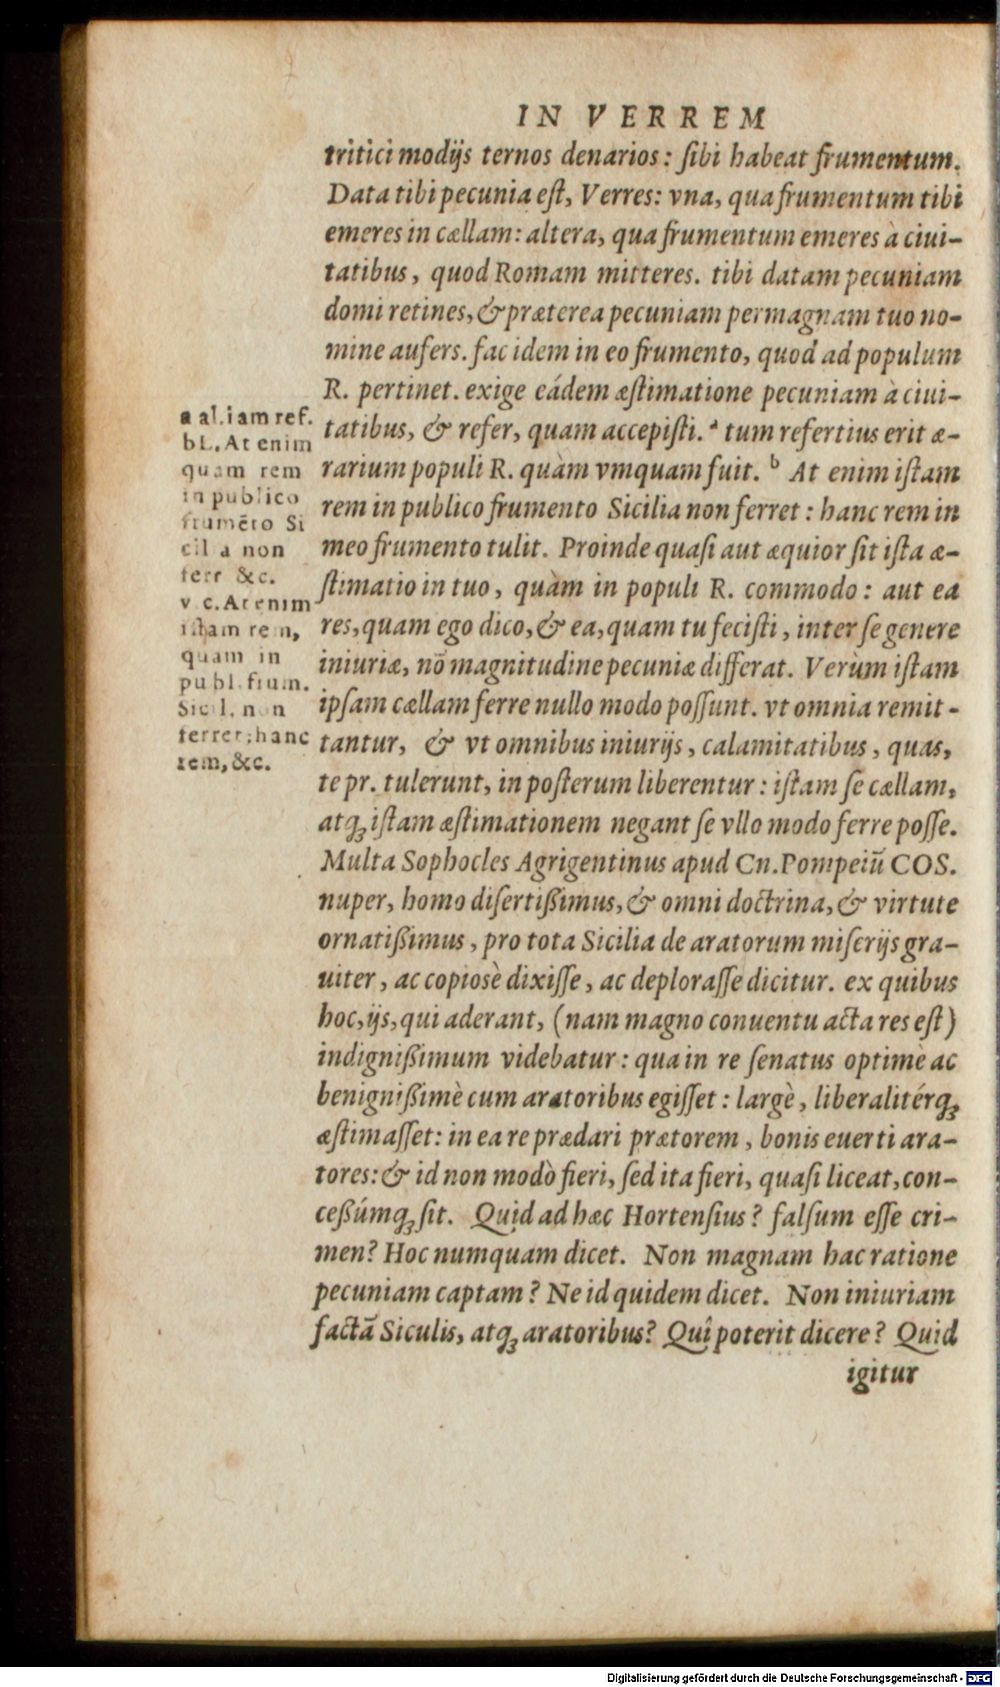 IN VERREM
tritici modijs ternos denarios: ſibi habeat frumentum.
Data tibi pecunia eſt, Verres: vna, qua frumentum tibi
emeres in cællam: altera, qua frumentum emeres à ciui-
tatibus, quod Romam mitteres. tibi datam pecuniam
domi retines, & præterea pecuniam permagnam tuo no-
mine aufers. fac idem in eo frumento, quod ad populum
R. pertinet. exige eádem æſtimatione pecuniam à ciui-
tatibus, & refer, quam accepiſti. ᵃ tum refertius erit æ-
rarium populi R. quàm vmquam fuit. ᵇ At enim iſtam
rem in publico frumento Sicilia non ferret: hanc rem in
meo frumento tulit. Proinde quaſi aut æquior ſit iſta æ-
ſtimatio in tuo, quàm in populi R. commodo: aut ea
res, quam ego dico, & ea, quam tu feciſti, inter ſe genere
iniuriæ, nō magnitudine pecuniæ differat. Verùm iſtam
ipſam cællam ferre nullo modo poſſunt. vt omnia remit-
tantur, & vt omnibus iniurijs, calamitatibus, quas,
te pr. tulerunt, in poſterum liberentur: iſtam ſe cællam,
atq́; iſtam æſtimationem negant ſe vllo modo ferre poſſe.
Multa Sophocles Agrigentinus apud Cn. Pompeiū COS.
nuper, homo diſertißimus, & omni doctrina, & virtute
ornatißimus, pro tota Sicilia de aratorum miſerijs gra-
uiter, ac copiosè dixiſſe, ac deploraſſe dicitur. ex quibus
hoc, ijs, qui aderant, (nam magno conuentu acta res eſt)
indignißimum videbatur: qua in re ſenatus optimè ac
benignißimè cum aratoribus egiſſet: largè, liberalitérq;
æſtimaſſet: in ea re prædari prætorem, bonis euerti ara-
tores: & id non modò fieri, ſed ita fieri, quaſi liceat, con-
ceßúmq; ſit. Quid ad hæc Hortenſius? falſum eſſe cri-
men? Hoc numquam dicet. Non magnam hac ratione
pecuniam captam? Ne id quidem dicet. Non iniuriam
factā Siculis, atq; aratoribus? Quî poterit dicere? Quid
igitur
a al. iam ref.
b L. At enim
quam rem
in publico
frumēto Si
cil a non
ferr &c.
v. c. At enim
iſtam rem,
quam in
publ. frum.
Sicil. non
ferret; hanc
rem, &c.
Digitalisierung gefördert durch die Deutsche Forschungsgemeinschaft - DFG